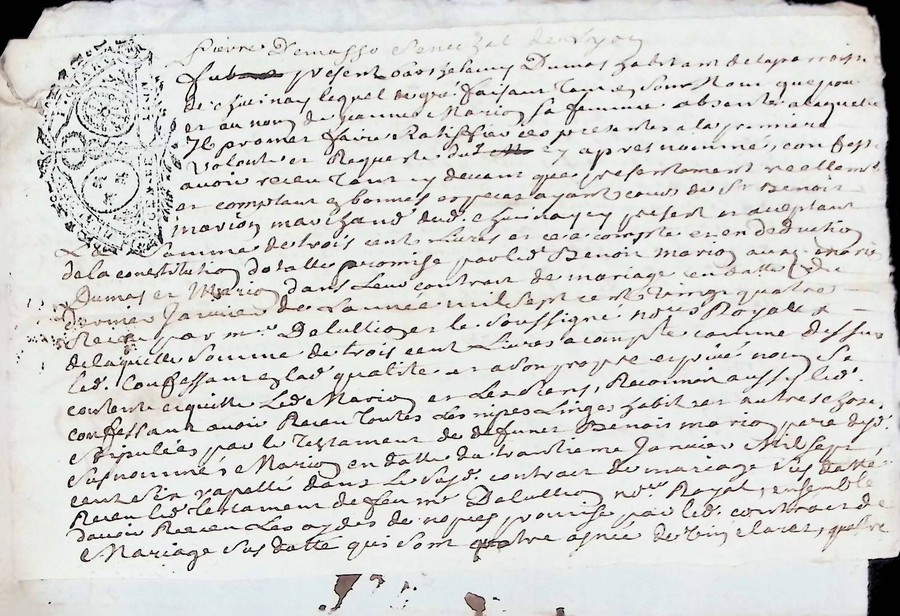 Pierre Demasso Senechal de Lyon
fut present Barthelemy Dumas habitant de la parroisse
de chuinay lequel de gré faisant tant en son Nom que pour
et au nom de jeanne Marion sa femme absente a laquelle
Il promet faire Ratiffier ces presentes a la premiere
volonté et Requeste du cy apres nommé, confesse
avoir receu tant cy devant que presentement reellement
et comptant en bonnes especes ayant cours de Sr Benoit
marion marchand dud. chuinay cy present et aceptant
La somme de trois cent Livres et ce a compte et en deduction
de la constitution dotalle promise par led. Benoit marion aux maries
Dumas et Marion dans Leur contrat de mariage en datte du
dernier Janvier de L'année mil sept cent vingt quatre
Receu par me Dalullion et le soussigné nores Royaux
de laquelle somme de trois cent Livres a compte comme dessus
led. Confessant en lad. qualité et a son propre et privé nom se
contente et quitte Led. Marion et Les siens, Reconnoit aussi led.
confessant avoir Receu Toutes Les nipes Linges habits et autres choses
stipulées par le Testament de deffunct Benoit marion pere dud.
susnommé Marion en datte du Janvier Mil sept
cent rapellé dans Le susd. contrat de mariage sus datté
Receu led. testament de feu me Dalullion nore Royal, ensemble
davoir Receu Les aydes de nopces promise par led. contract de
Mariage sus datté qui sont quatre asnée de vin claret, quatre